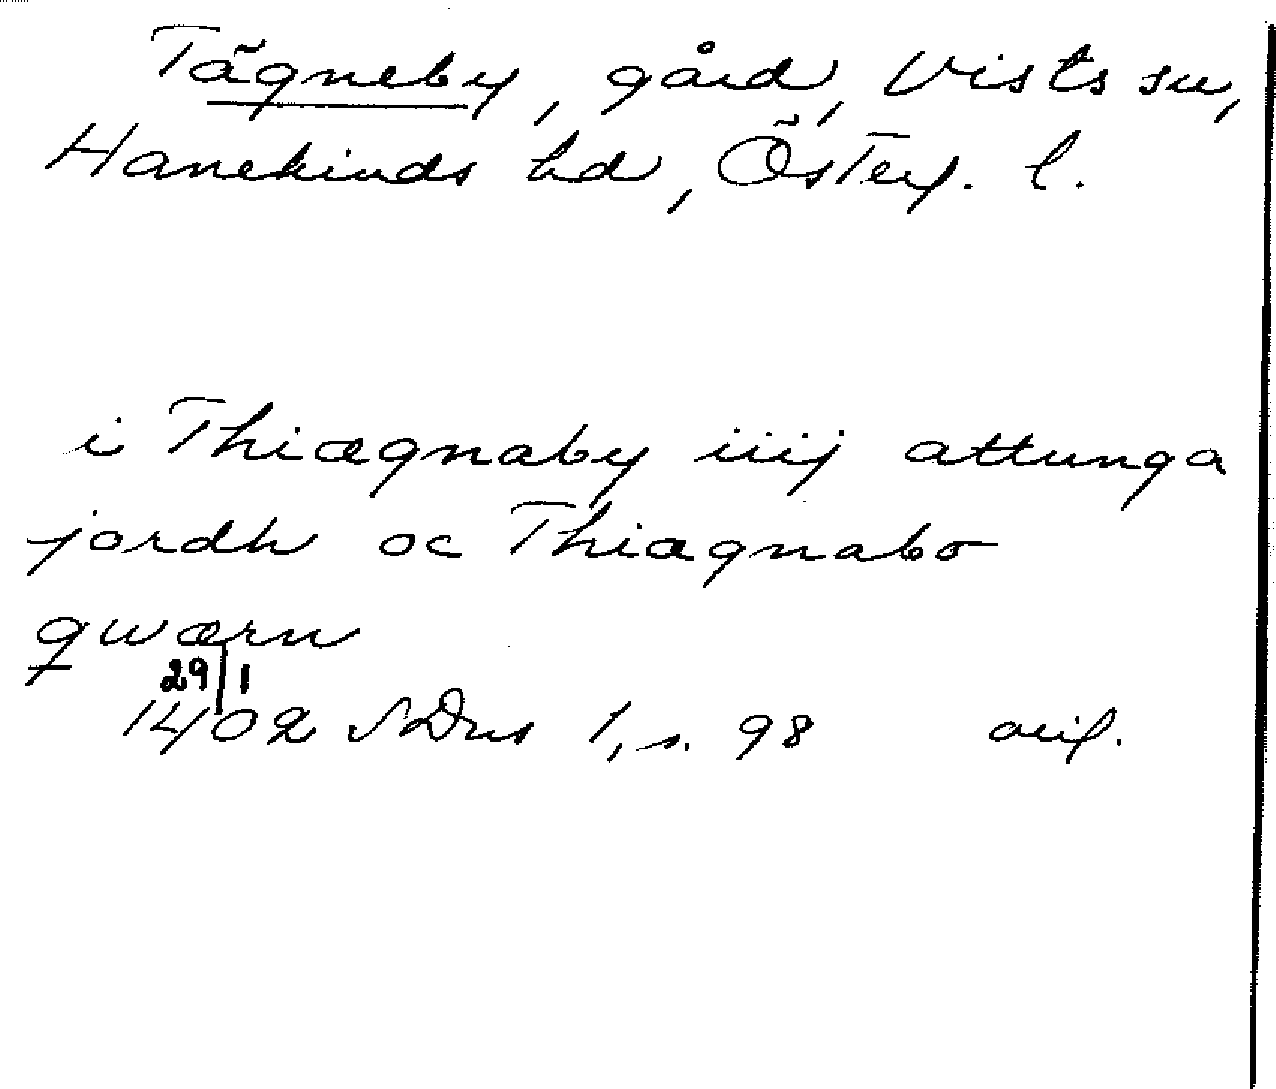 Tägneby, gård, Vists sn,
Hanekinds hd, Österg. l.
i Thiægnaby iiij attunga
jordh oc Thiægnabo
qwærn
29/1
1402 SDns 1, s. 98 orig.